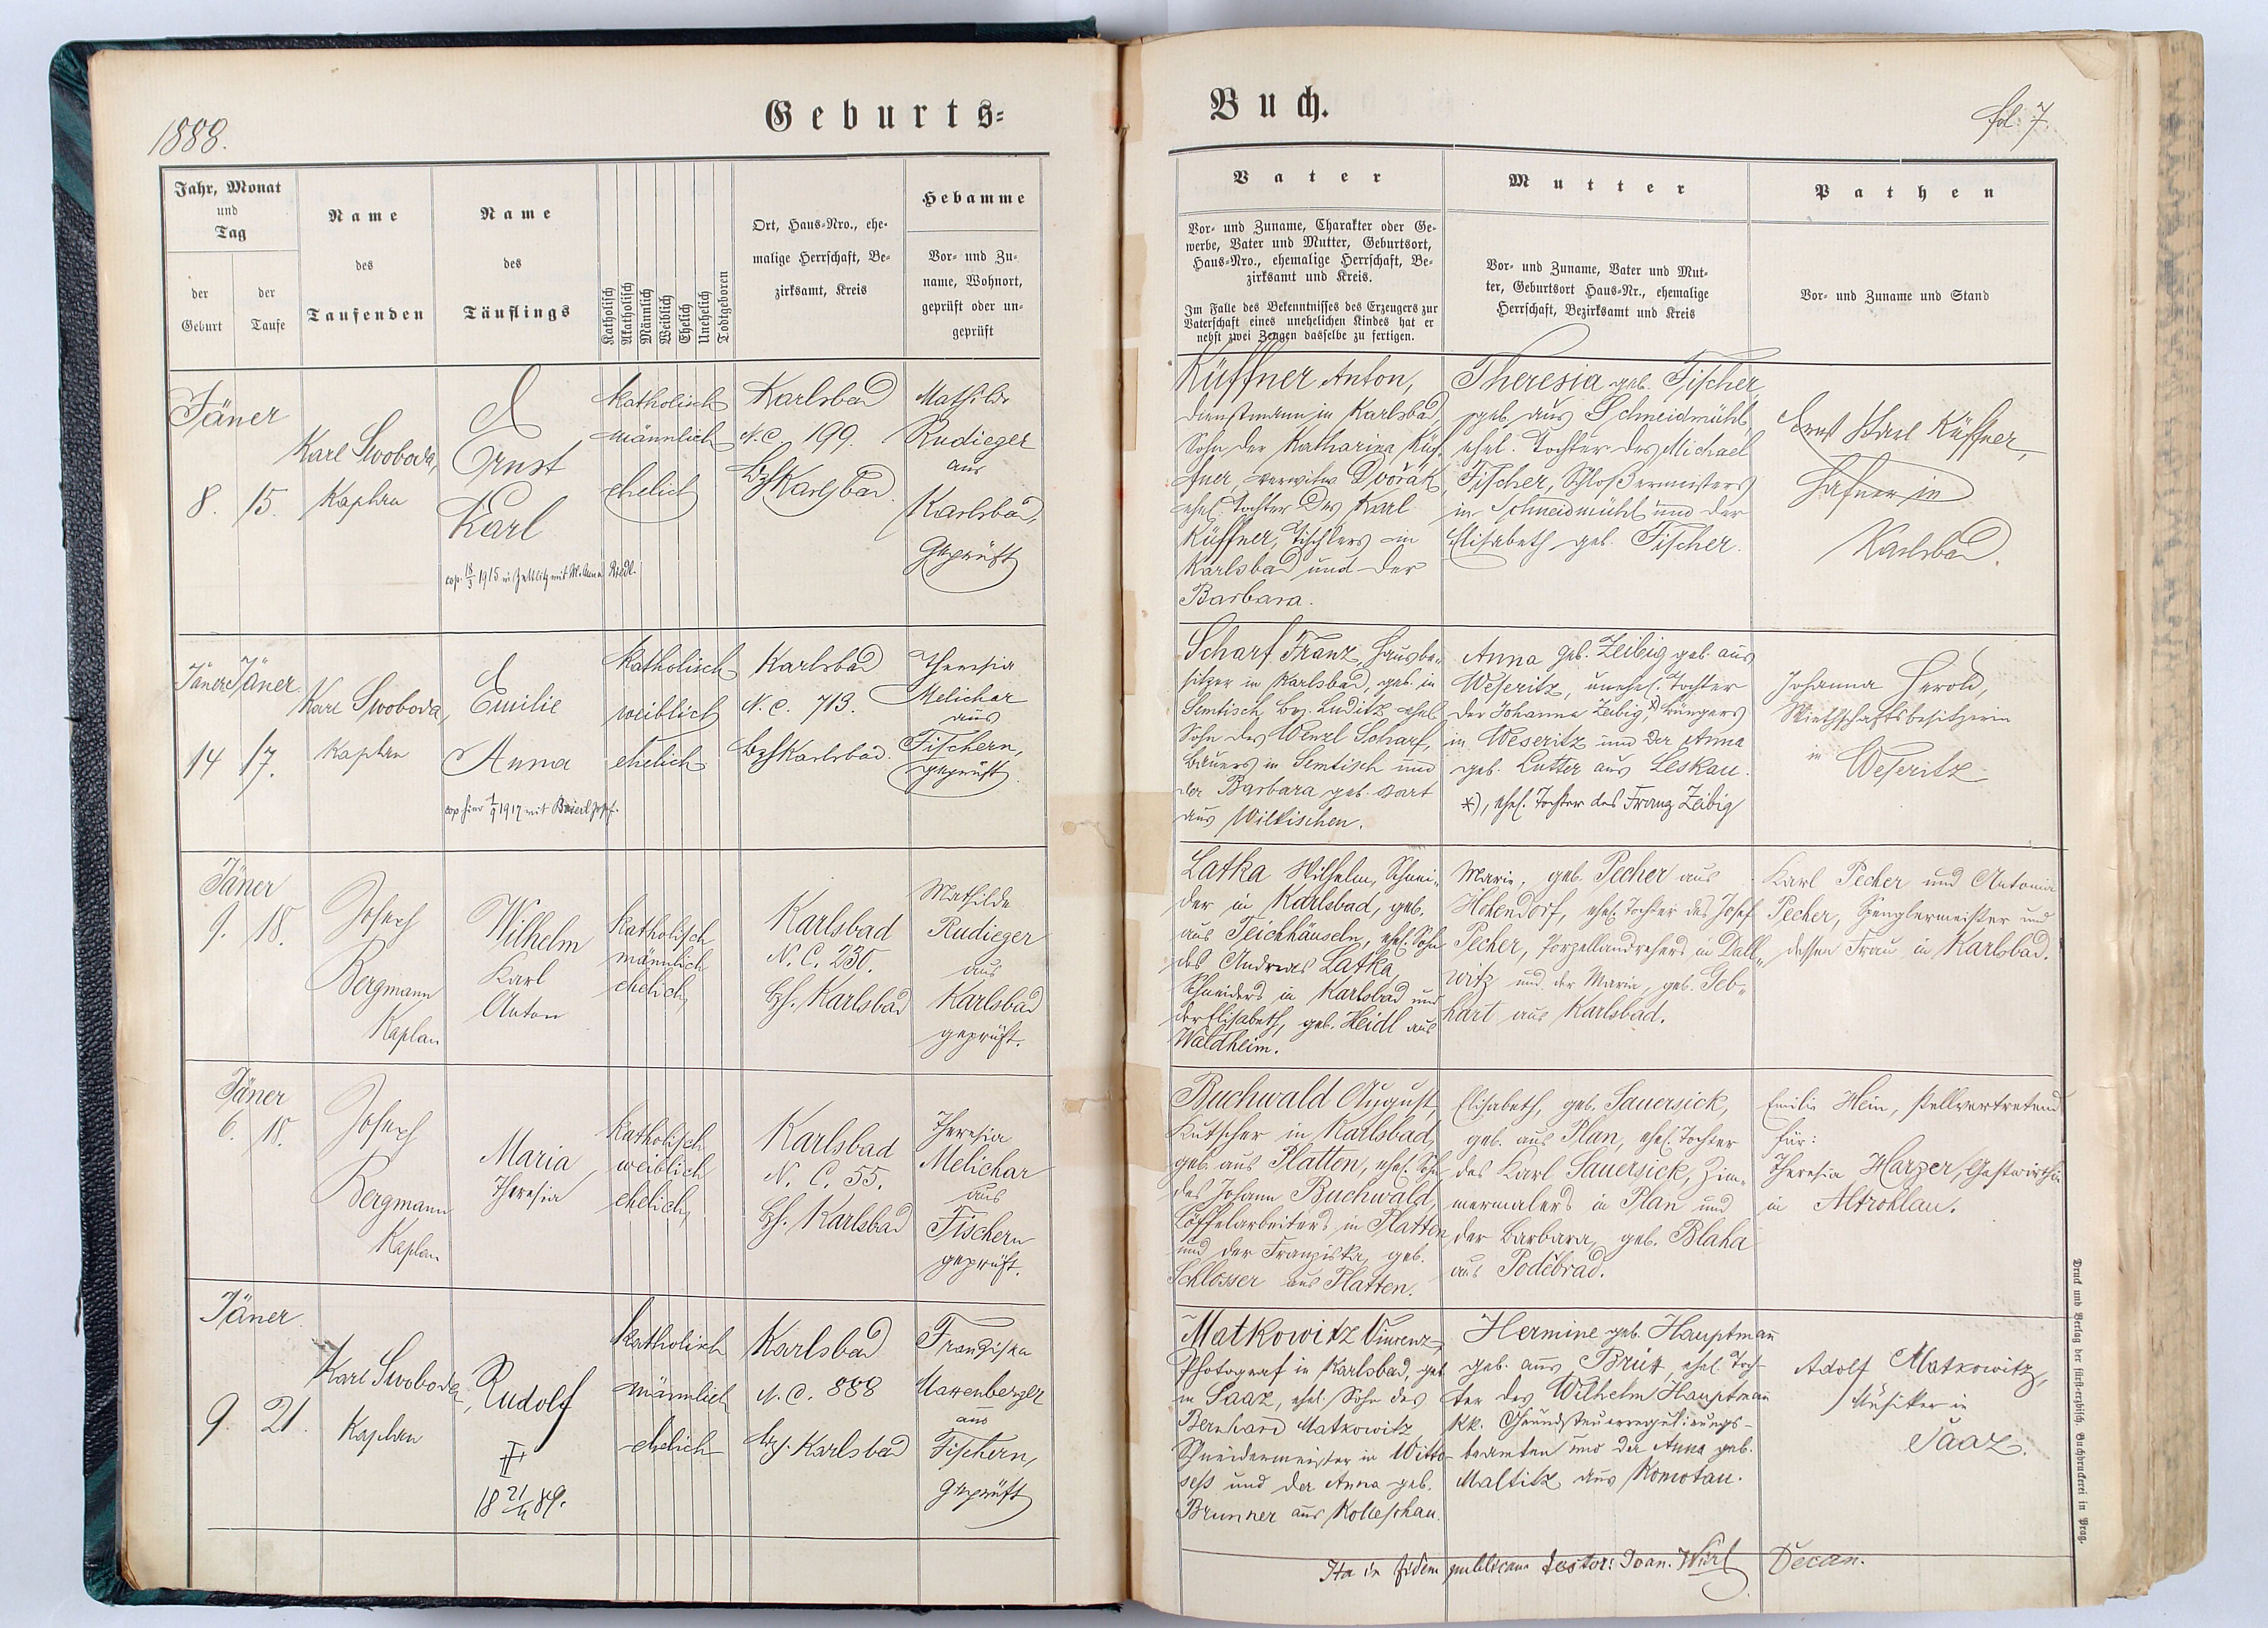 1888.
Geburts=
Jahr, Monat
und
Tag
der
Geburt
der
Taufe
Name
des
Taufenden
Name
des
Täuflings
Katholisch
Akatholisch
Männlich
Weiblich
Ehelich
Unehelich
Todtgeboren
Ort, Haus=Nro., ehe=
malige Herrschaft, Be=
zirksamt, Kreis
Hebamme
Vor= und Zu=
name, Wohnort,
geprüft oder un=
geprüft
Jäner
8. 15.
Karl Swoboda,
Kaplan
Ernst
Karl
cop. 18/3 1915 in Zettlitz mit M. Anna Riedl.
katholisch
männlich
ehelich
Karlsbad
N.C. 199.
Bzh Karlsbad.
Mathilde
Rudieger
aus
Karlsbad,
Geprüft
Jäner Jäner
14 17.
Karl Swoboda,
Kaplan
Emilie
Anna
cop hier 1917 mit Josef.
katholisch
weiblich
ehelich
Karlsbad
N. C. 713.
Bzh Karlsbad.
Theresia
Melichar
aus
Fischern,
geprüft.
Jäner
9. 18.
Josef
Bergmann
Kaplan
Wilhelm
Karl
Anton
katholisch
männlich
ehelich,
Karlsbad
N. C. 230.
Bh. Karlsbad
Mathilde
Rudieger
aus
Karlsbad
geprüft.
Jäner
6. 18.
Josef
Bergmann
Kaplan
Maria
Theresia
katholisch
weiblich
ehelich,
Karlsbad
N. C. 55.
Bh. Karlsbad
Theresia
Melichar
aus
Fischern
geprüft.
Jäner
9. 21.
Karl Swoboda,
Kaplan
Rudolf
18 21/4 89.
katholisch
männlich
ehelich
Karlsbad
N. C. 888
Bzh. Karlsbad
Franziska
aus
Fischern,
geprüft
Buch.
fol. 7.
Vater
Vor= und Zuname, Charakter oder Ge=
werbe, Vater und Mutter, Geburtsort,
Haus=Nro., ehemalige Herrschaft, Be=
zirksamt und Kreis.
Im Falle des Bekenntnisses des Erzeugers zur
Vaterschaft eines unehelichen Kindes hat er
nebst zwei Zeugen dasselbe zu fertigen.
Mutter
Vor= und Zuname, Vater und Mut=
ter, Geburtsort Haus=Nr., ehemalige
Herrschaft, Bezirksamt und Kreis
Pathen
Vor= und Zuname und Stand
Küffner Anton,
Dienstmann in Karlsbad,
Sohn der Katharina Küf-
fner, verwitw. Dvořák,
ehel. Tochter des Karl
Küffner, Tischlers in
Karlsbad und der
Barbara.
Theresia geb. Fischer,
geb. aus Schneidmühl,
ehel. Tochter des Michael
Fischer, Schloßermeisters
in Schneidmühl und der
Elisabeth geb. Fischer.
Ernst Karl Küffner,
Hafner in
Karlsbad.
Scharf Franz, Hausbe-
sitzer in Karlsbad, geb. in
Semtisch Bz. Luditz ehel.
Sohn des Wenzl Scharf,
Bauers in Semtisch und
der Barbara geb. Hart
aus Wilkischen.
Anna geb. Zeibig geb. aus
Weseritz, unehel. Tochter
der Johanna Zeibig, *) Bürgers
in Weseritz und der Anna
geb. Lutter aus Leskau.
*), ehel. Tochter des Franz Zeibig
Johanna Herold,
Wirthschaftsbesitzerin
in Weseritz
Latka Wilhelm, Schnei-
der in Karlsbad, geb.
aus Teichhäuseln, ehel. Sohn
des Andreas Latka,
Schneiders in Karlsbad und
der Elisabeth, geb. Heidl aus
Waldheim.
Marie, geb. Pecher aus
Hohendorf, ehel. Tochter des Josef
Pecher, Porzellandrehers in Dall-
witz und der Maria, geb. Geb-
hart aus Karlsbad.
Karl Pecher und Antonia
Pecher, Spenglermeister und
dessen Frau in Karlsbad.
Buchwald August,
Kutscher in Karlsbad,
geb. aus Platten, ehel. Sohn
des Johann Buchwald,
Löffelarbeiters in Platten
und der Franziska, geb.
Schlosser aus Platten.
Elisabeth, geb. Sauersick,
geb. aus Plan, ehel. Tochter
des Karl Sauersick, Zim-
mermalers in Plan und
der Barbara, geb. Blaha
aus Poděbrad.
Emilie Hein, stellvertretend
für:
Theresia Harzer, Gastwirthin
in Altrohlau.
Matkowitz Vincenz,
Photograf in Karlsbad, geb.
in Saaz, ehel. Sohn des
Bernhard Matkowitz
Schneidermeister in Witto-
sess und der Anna geb.
Brunner aus Kolleschau.
Hermine geb. Hauptman
geb. aus Brüx, ehel. Toch-
ter des Wilhelm Hauptman
kk. Grundsteuerregulirungs-
beamten und der Anna geb.
Maltitz aus Komotau.
Adolf Matkowitz,
Musiker in
Saaz.
Ita in fidem publicam testor: Joan. Decan.
Druck und Verlag der fürst=erzbisch. Buchdruckerei in Prag.